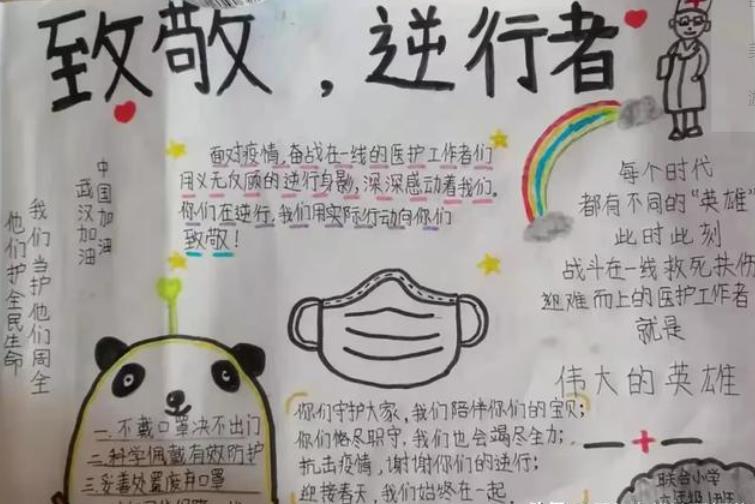 致敬，逆行者
面对疫情，奋战在一线的医护工作者们
用义无反顾的逆行身影，深深感动着我们。
你们在逆行，我们用实际行动向你们
致敬！
中国加油
武汉加油
我们当护他们周全
他们护全民生命
每个时代
都有不同的“英雄”
此时此刻
战斗在一线救死扶伤
迎难而上的医护工作者
就是
伟大的英雄
一、不戴口罩决不出门
二、科学佩戴有效防护
三、妥善处置废弃口罩
你们守护大家，我们陪伴你们的宝贝；
你们恪尽职守，我们也会竭尽全力；
抗击疫情，谢谢你们的逆行；
迎接春天，我们始终在一起
联合小学